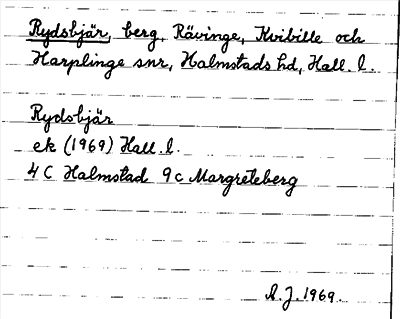 Rydsbjär, berg, Rävinge, Kvibille och
Harplinge snr, Halmstads hd, Hall. l.
Rydsbjär
ek (1969) Hall. l.
4 C Halmstad 9 c Margreteberg
A. J. 1969.